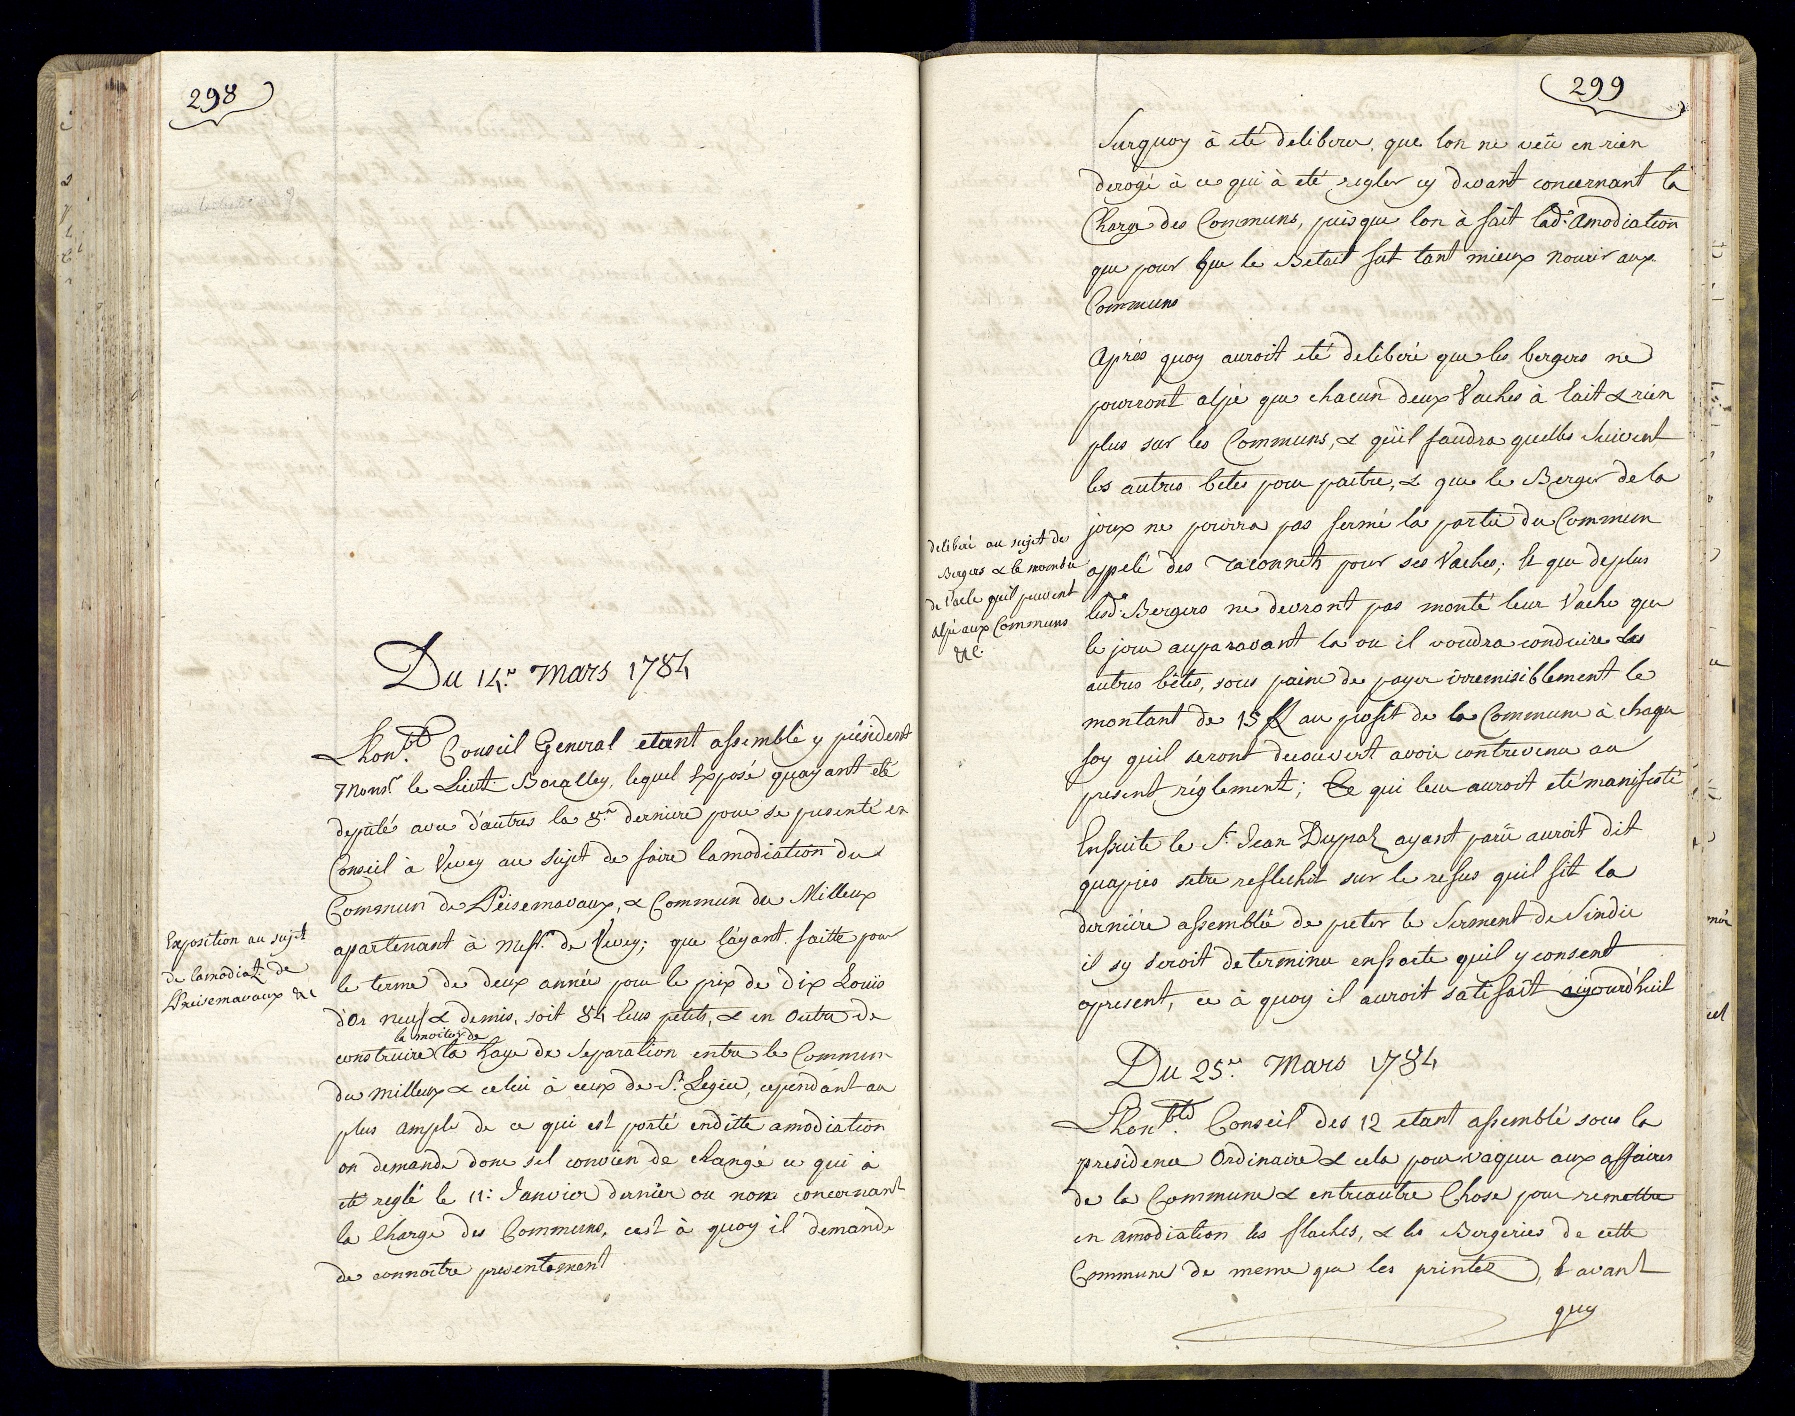 298
Du 14.e Mars 1784
Lhon.ble Conseil General etant assemblé y président
Mons.r le Lieut. Bocalley, lequel Exposé quayant eté
deputé avec d'autres la 8.e derniere pour se presenté en
Conseil à Vevey au sujet de faire lamodiation du
Commun de Preisemavaux, & Commun du Milleux
apartenant à Mess.rs de Vevey; que l'áyant faitte pour
le terme de deux année pour le prix de Dix Louïs
d'Or neuf & demis, soit 84 leus petits, & en Outre de
la moitier de
construire la haye de Separation entre le Commun
du Milleux & celui à ceux de S.t Legier, cependant au
plus ample de ce qui est porté enditte amodiation
on demande donc sel convien de changé ce qui à
eté reglé le 11.e Janvier dernier ou nom concernant
la Charge des Communs, cest à quoy il demande
de connoitre presentement
Exposition au sujet
de lamodiat. de
Preisemavaux &c
299
Surquoy à eté deliberer, que lon ne veü en rien
derogé à ce qui à eté regler cy devant concernant la
Charge des Communs, puisque lon à fait lad.e Amodiation
que pour que le Betail fut tant mieux nourir aux
Communs
Après quoy auroit eté deliberé que les bergers ne
pourront alpé que chacun deux Vaches à lait & rien
plus sur les Communs, & quïl faudra quelles suivent
les autres bêtes pour paitre, & que le Berger de la
joux ne pourra pas fermé la partie du Commun
appelé des raconnets pour ses Vaches; Et que deplus
lesd.s Bergers ne devront pas monté leur Vache que
le jour auparavant la ou il voudra conduire les
autres bêtes, sous paine de payer irremisiblement le
montant de 15 fl au profit de la Commune à chaque
foy quil seront decouvert avoir contrevenu au
present réglement; Ce qui leur auroit eté manifesté
Ensuite le S.r Jean Dupraz ayant parü auroit dit
quapres setre reflechit sur le refus quil fit la
derniére assemblée de preter le Serment de Sindic
il sy seroit determine ensorte quil y consent
apresent, ce à quoy il auroit satisfait aujourd'huit
deliberé au sujet des
Bergers & le nombre
de Vache quil peuvent
alpé aux Communs
&c.
Du 25.e Mars 1784
Lhon.ble Conseil des 12 etant assemblé sous la
presidence Ordinaire & cela pour vaquer aux affaires
de la Commune & entreautre Chose pour remettre
en amodiation les flaches, & les Bergeries de cette
Commune de meme que les printez, & avant
quy